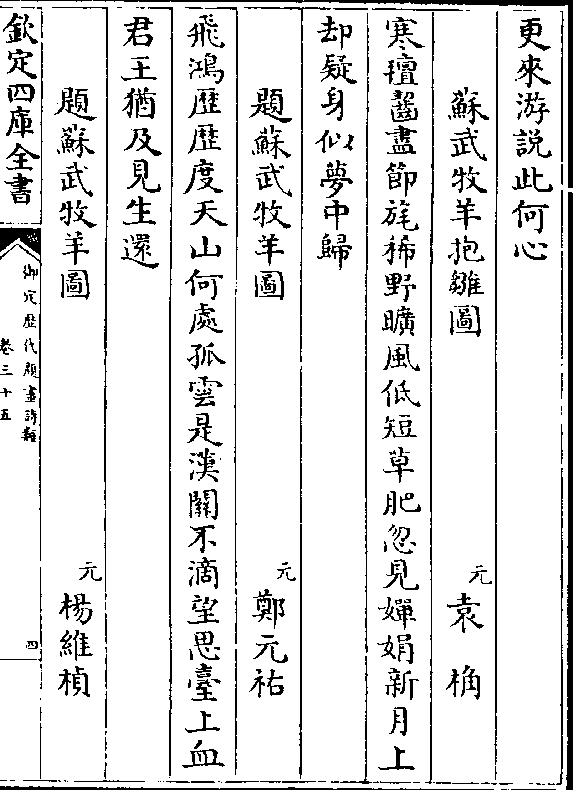 更來游說此何心
蘇武牧羊抱雛圖 元 袁桷
寒氊齧盡節旄稀野曠風低短草肥忽見嬋娟新月上
却疑身似夢中歸
題蘇武牧羊圖 元 鄭元祐
飛鴻歴歴度天山何處孤雲是漢關不滴望思臺上血
君王猶及見生還
題蘇武牧羊圖 元 楊維楨
欽定四庫全書 御定歴代題畫詩類 卷三十五 四